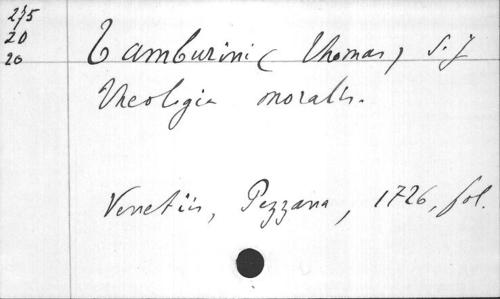 275
20
20
Tamburini (Thomas) S. J
Theologia moralis.
Venetiis, Pezzana, 1726, fol.